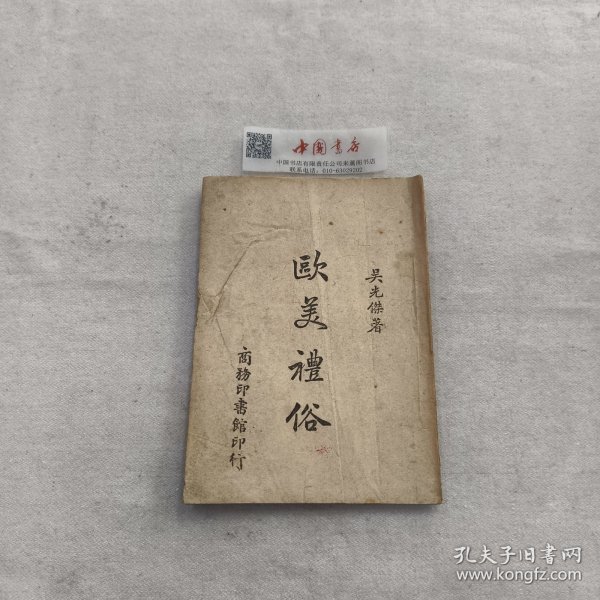 中国書店
中国书店有限责任公司来薰阁书店
联系电话：010-63029202
吴光傑著
歐美禮俗
商務印書館印行
孔夫子旧书网
www.kongfz.com